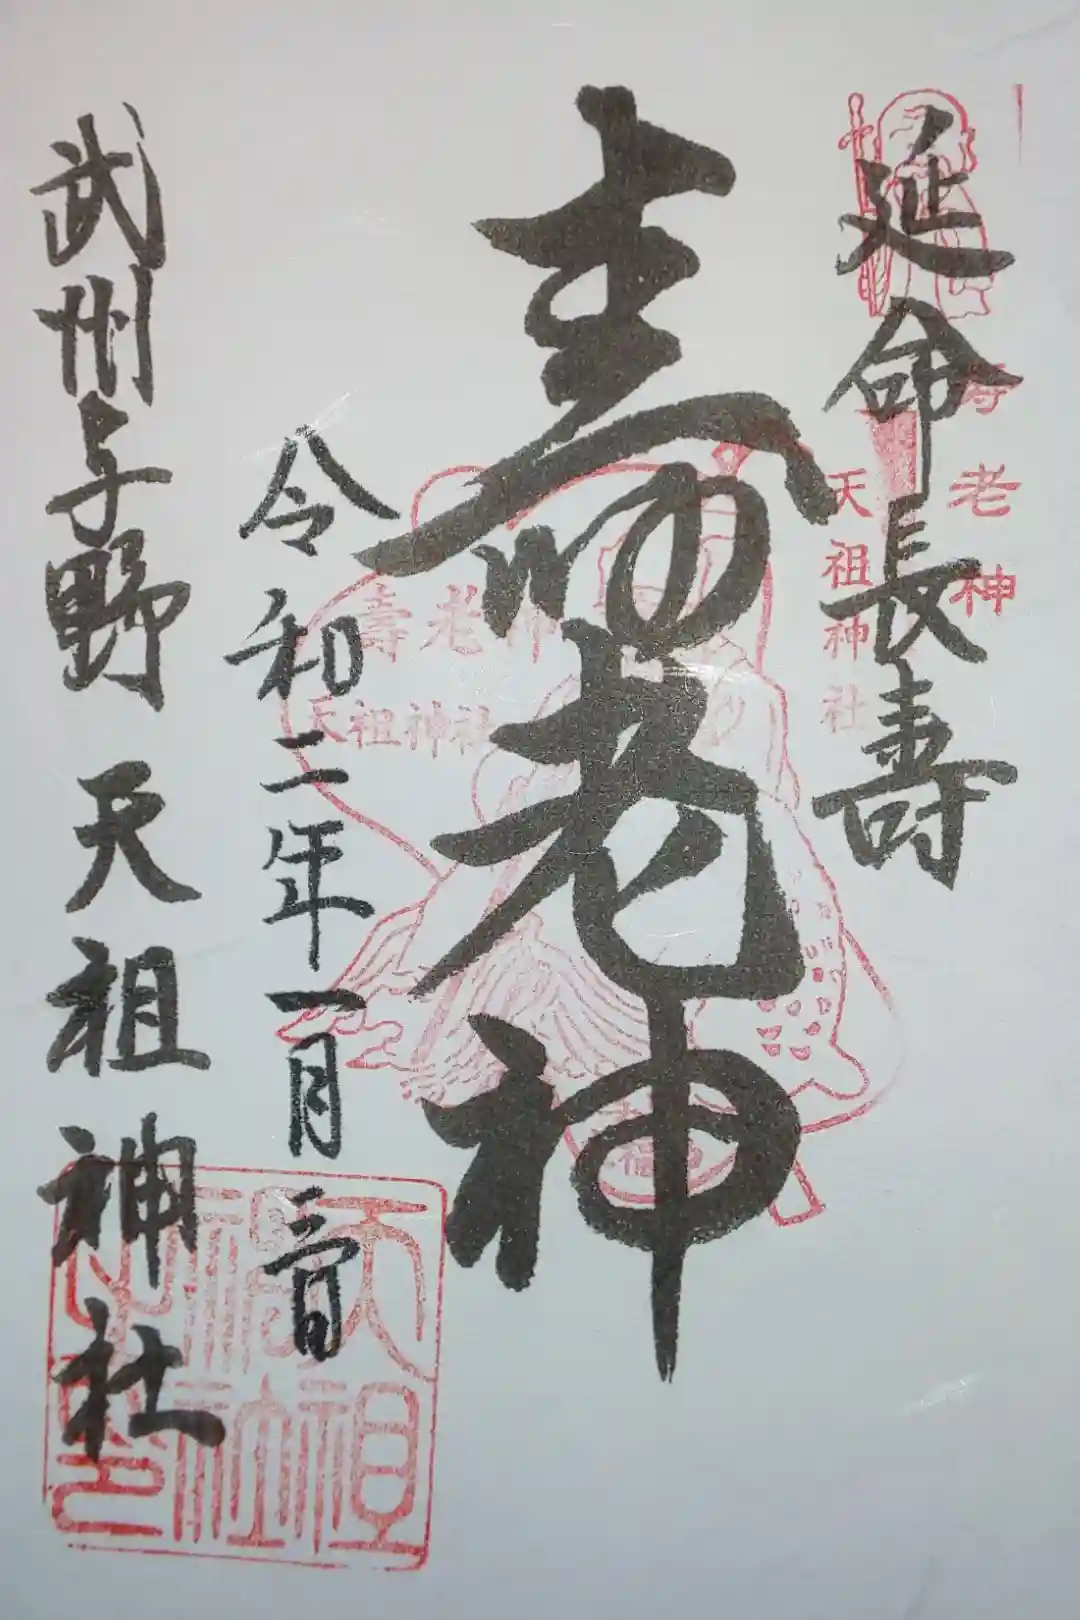 延命長寿
寿老神
天祖神社
壽老神
壽老神
天祖神社
令和二年一月三日
武州与野 天祖神社
天祖神社